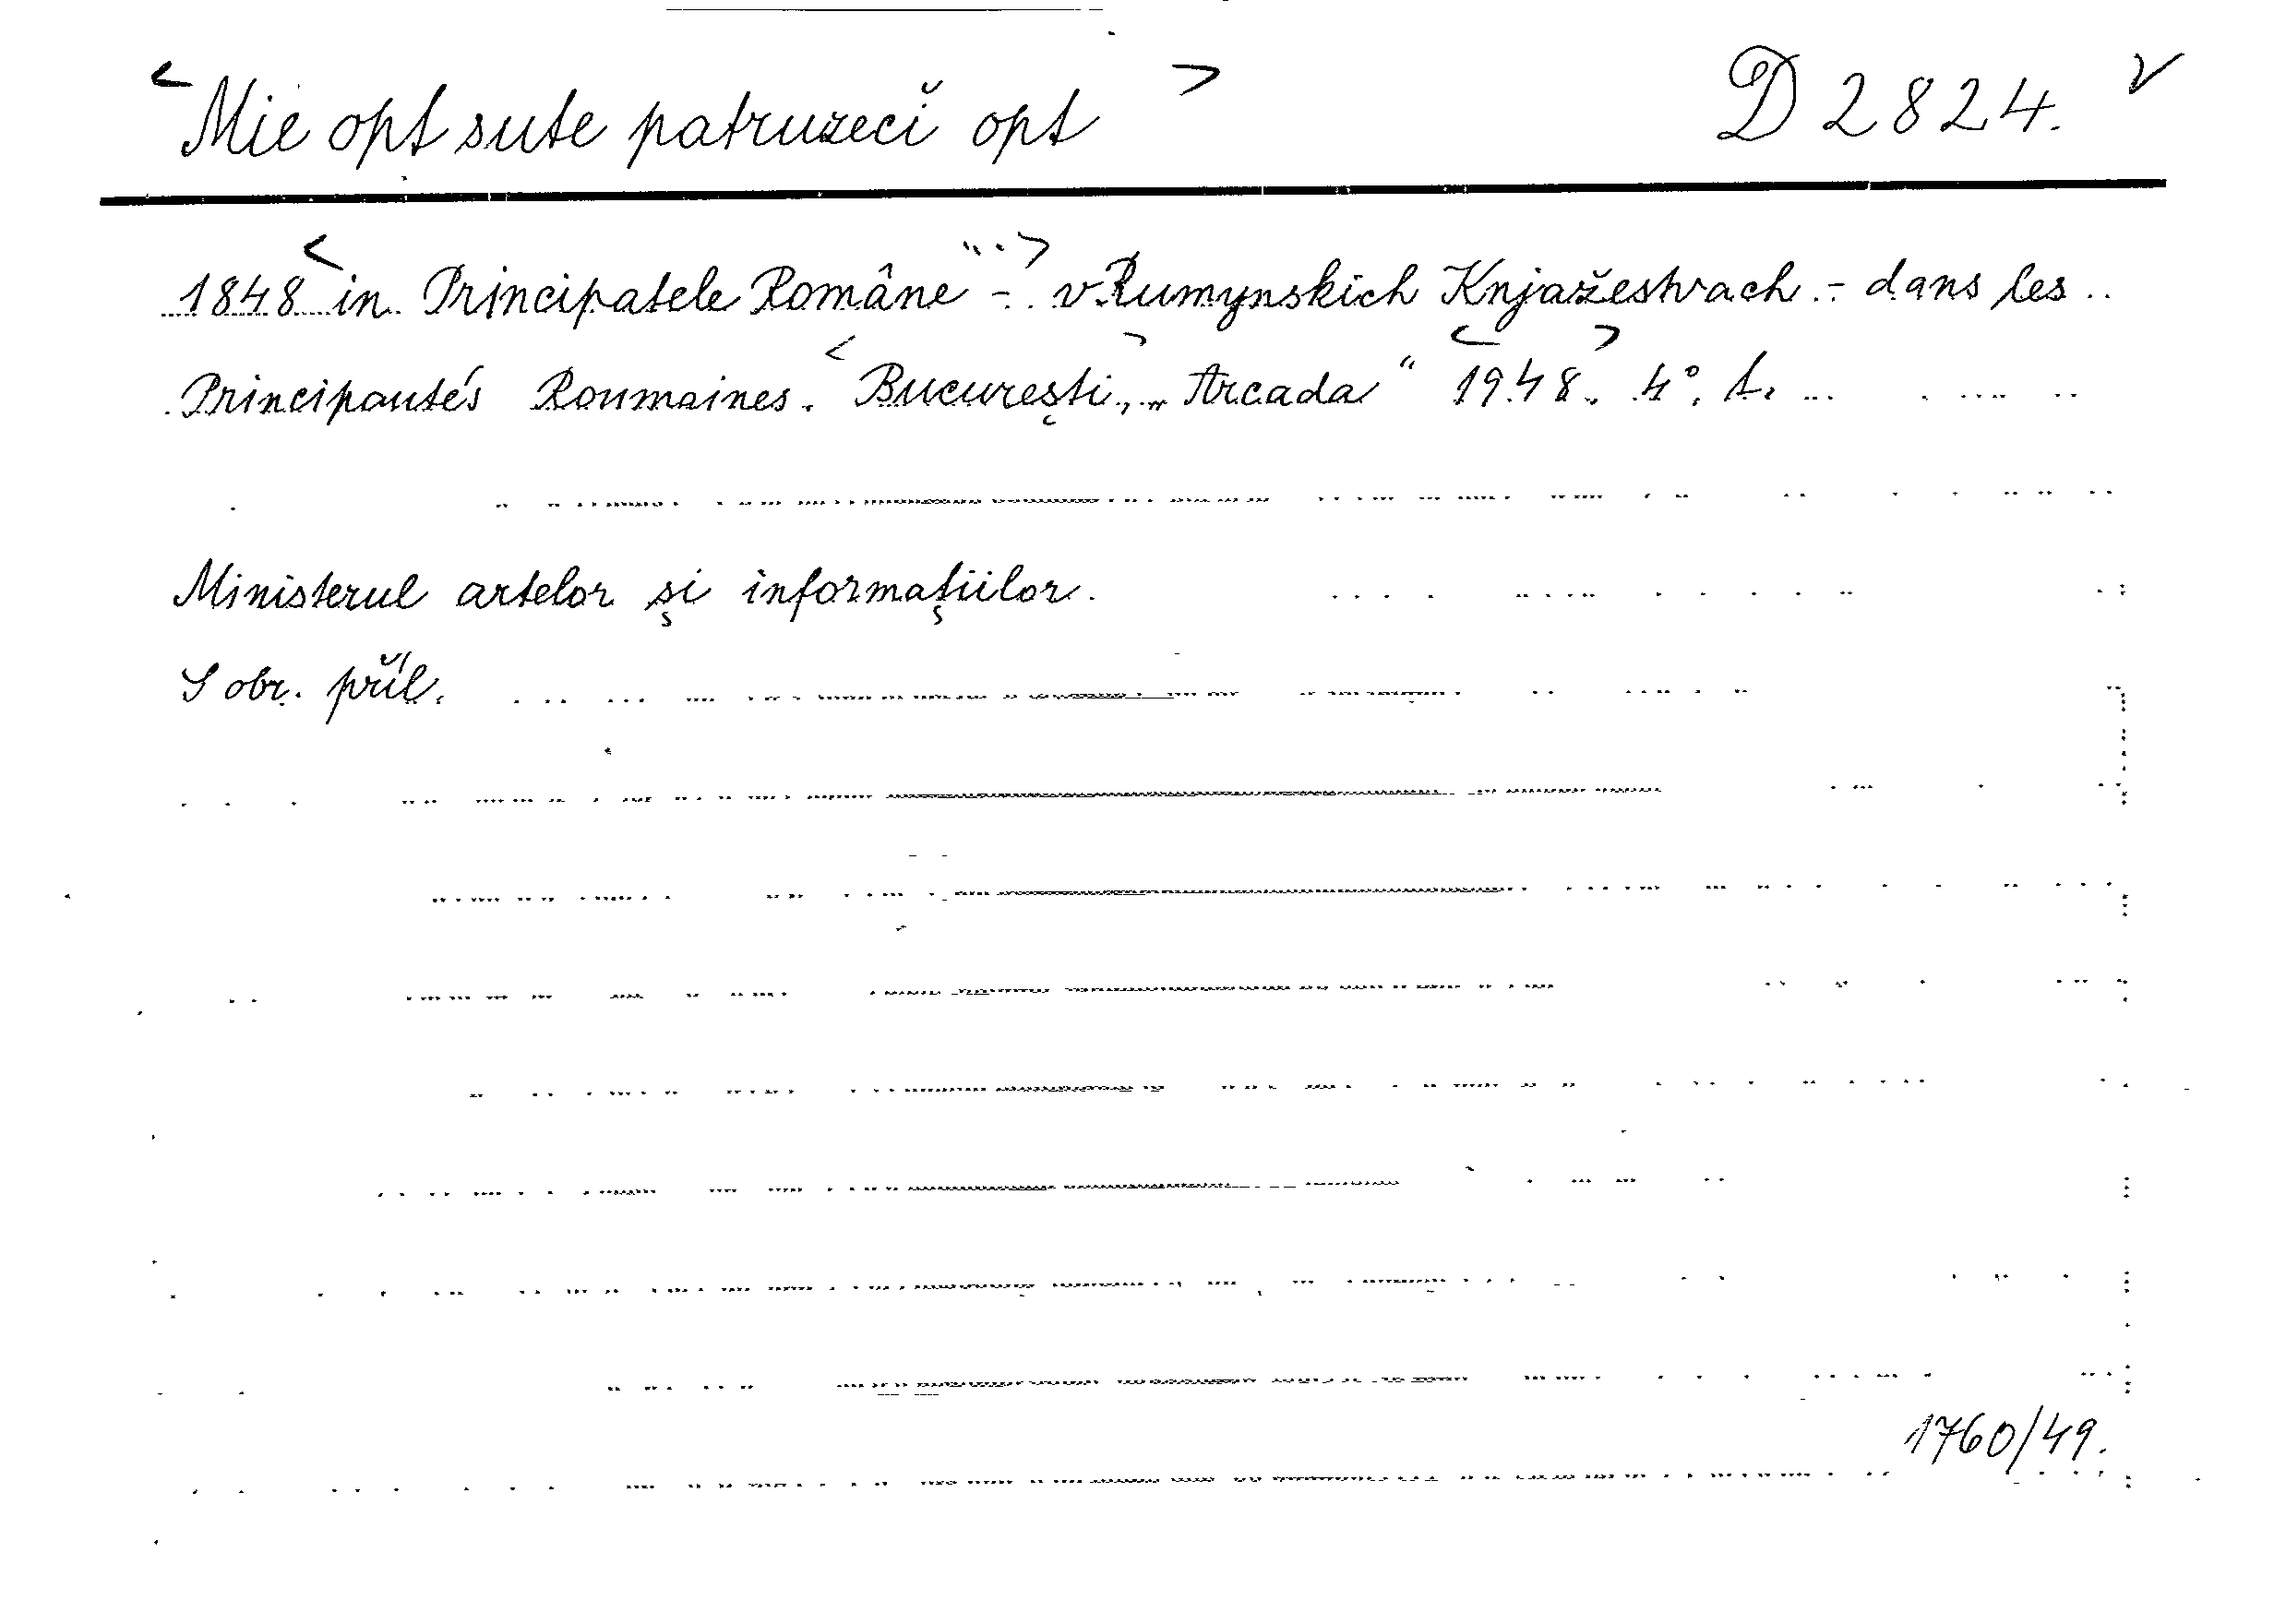 <Mie opt sute patruzecĭ opt> D 2824. v
1848 <in Principatele Române"·> – v Rumynskich Knjažestvach – dans les
Principautés Roumaines. <București>, „Arcada" <1948>. 4°. t.
Ministerul artelor și informațiilor.
S obr. příl.
1760/49.